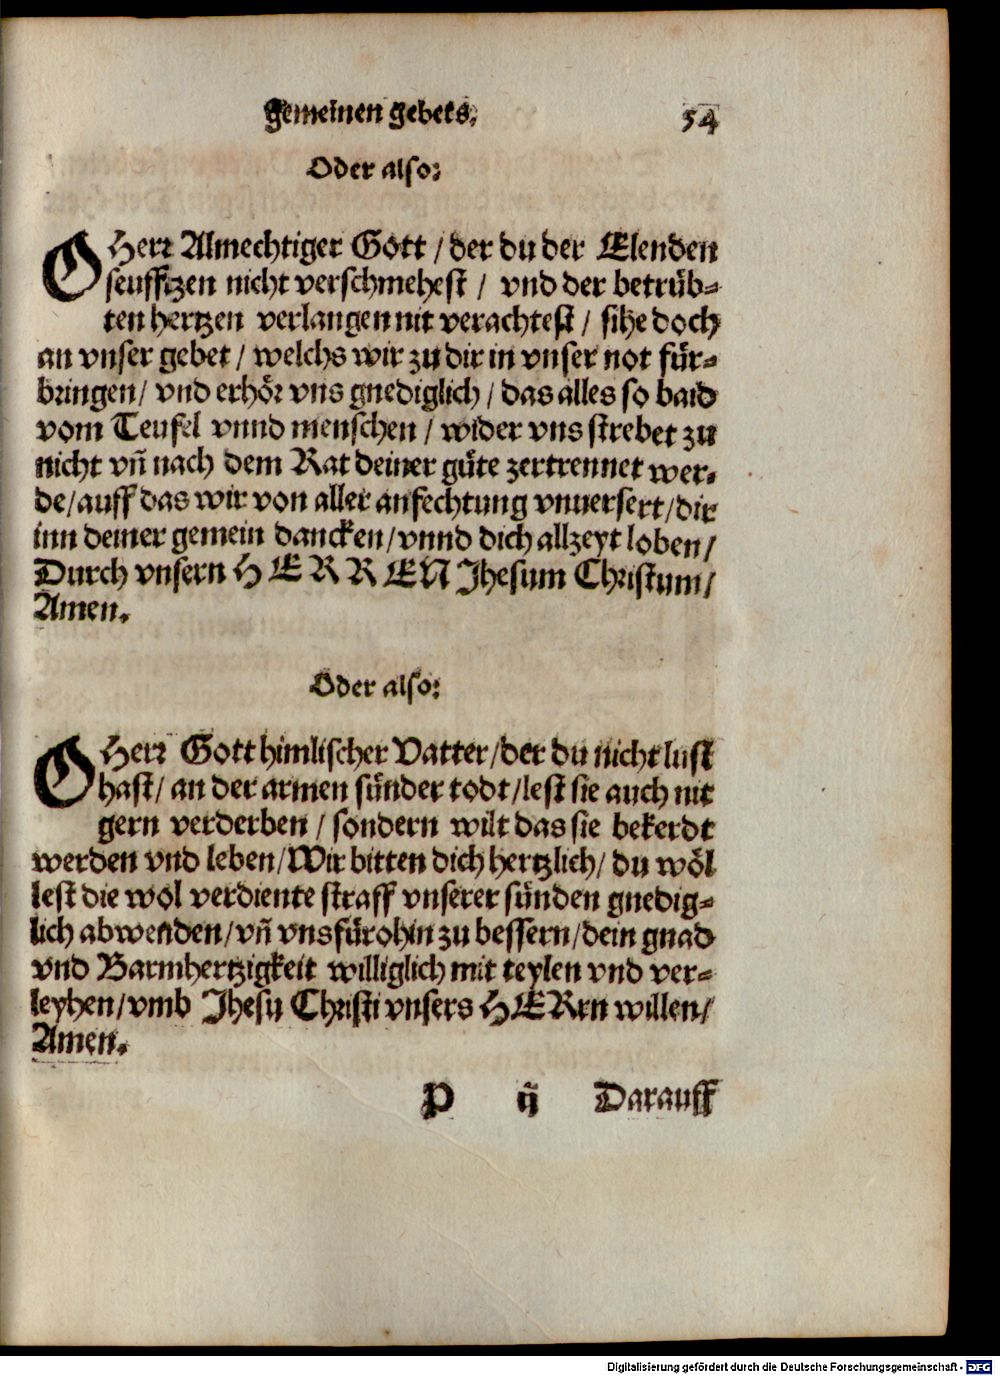 gemeinen gebets. 54
Oder also:
O Herr Almechtiger Gott / der du der Elenden
seufftzen nicht verschmehest / vnd der betrüb-
ten hertzen verlangen nit verachtest / sihe doch
an vnser gebet / welchs wir zu dir in vnser not für-
bringen / vnd erhör vns gnediglich / das alles so baid
vom Teufel vnnd menschen / wider vns strebet zu
nicht vñ nach dem Rat deiner güte zertrennet wer-
de / auff das wir von aller anfechtung vnuersert / dir
inn deiner gemein dancken / vnnd dich allzeyt loben /
Durch vnsern HERREN Jhesum Christum /
Amen.
Oder also:
O Herr Gott himlischer Vatter / der du nicht lust
hast / an der armen sünder todt / lest sie auch nit
gern verderben / sondern wilt das sie bekerdt
werden vnd leben / Wir bitten dich hertzlich / du wöl
lest die wol verdiente straff vnserer sünden gnedig-
lich abwenden / vñ vns fürohin zu bessern / dein gnad
vnd Barmhertzigkeit williglich mit teylen vnd ver-
leyhen / vmb Jhesu Christi vnsers HERrn willen /
Amen.
P ij Darauff
Digitalisierung gefördert durch die Deutsche Forschungsgemeinschaft - DFG